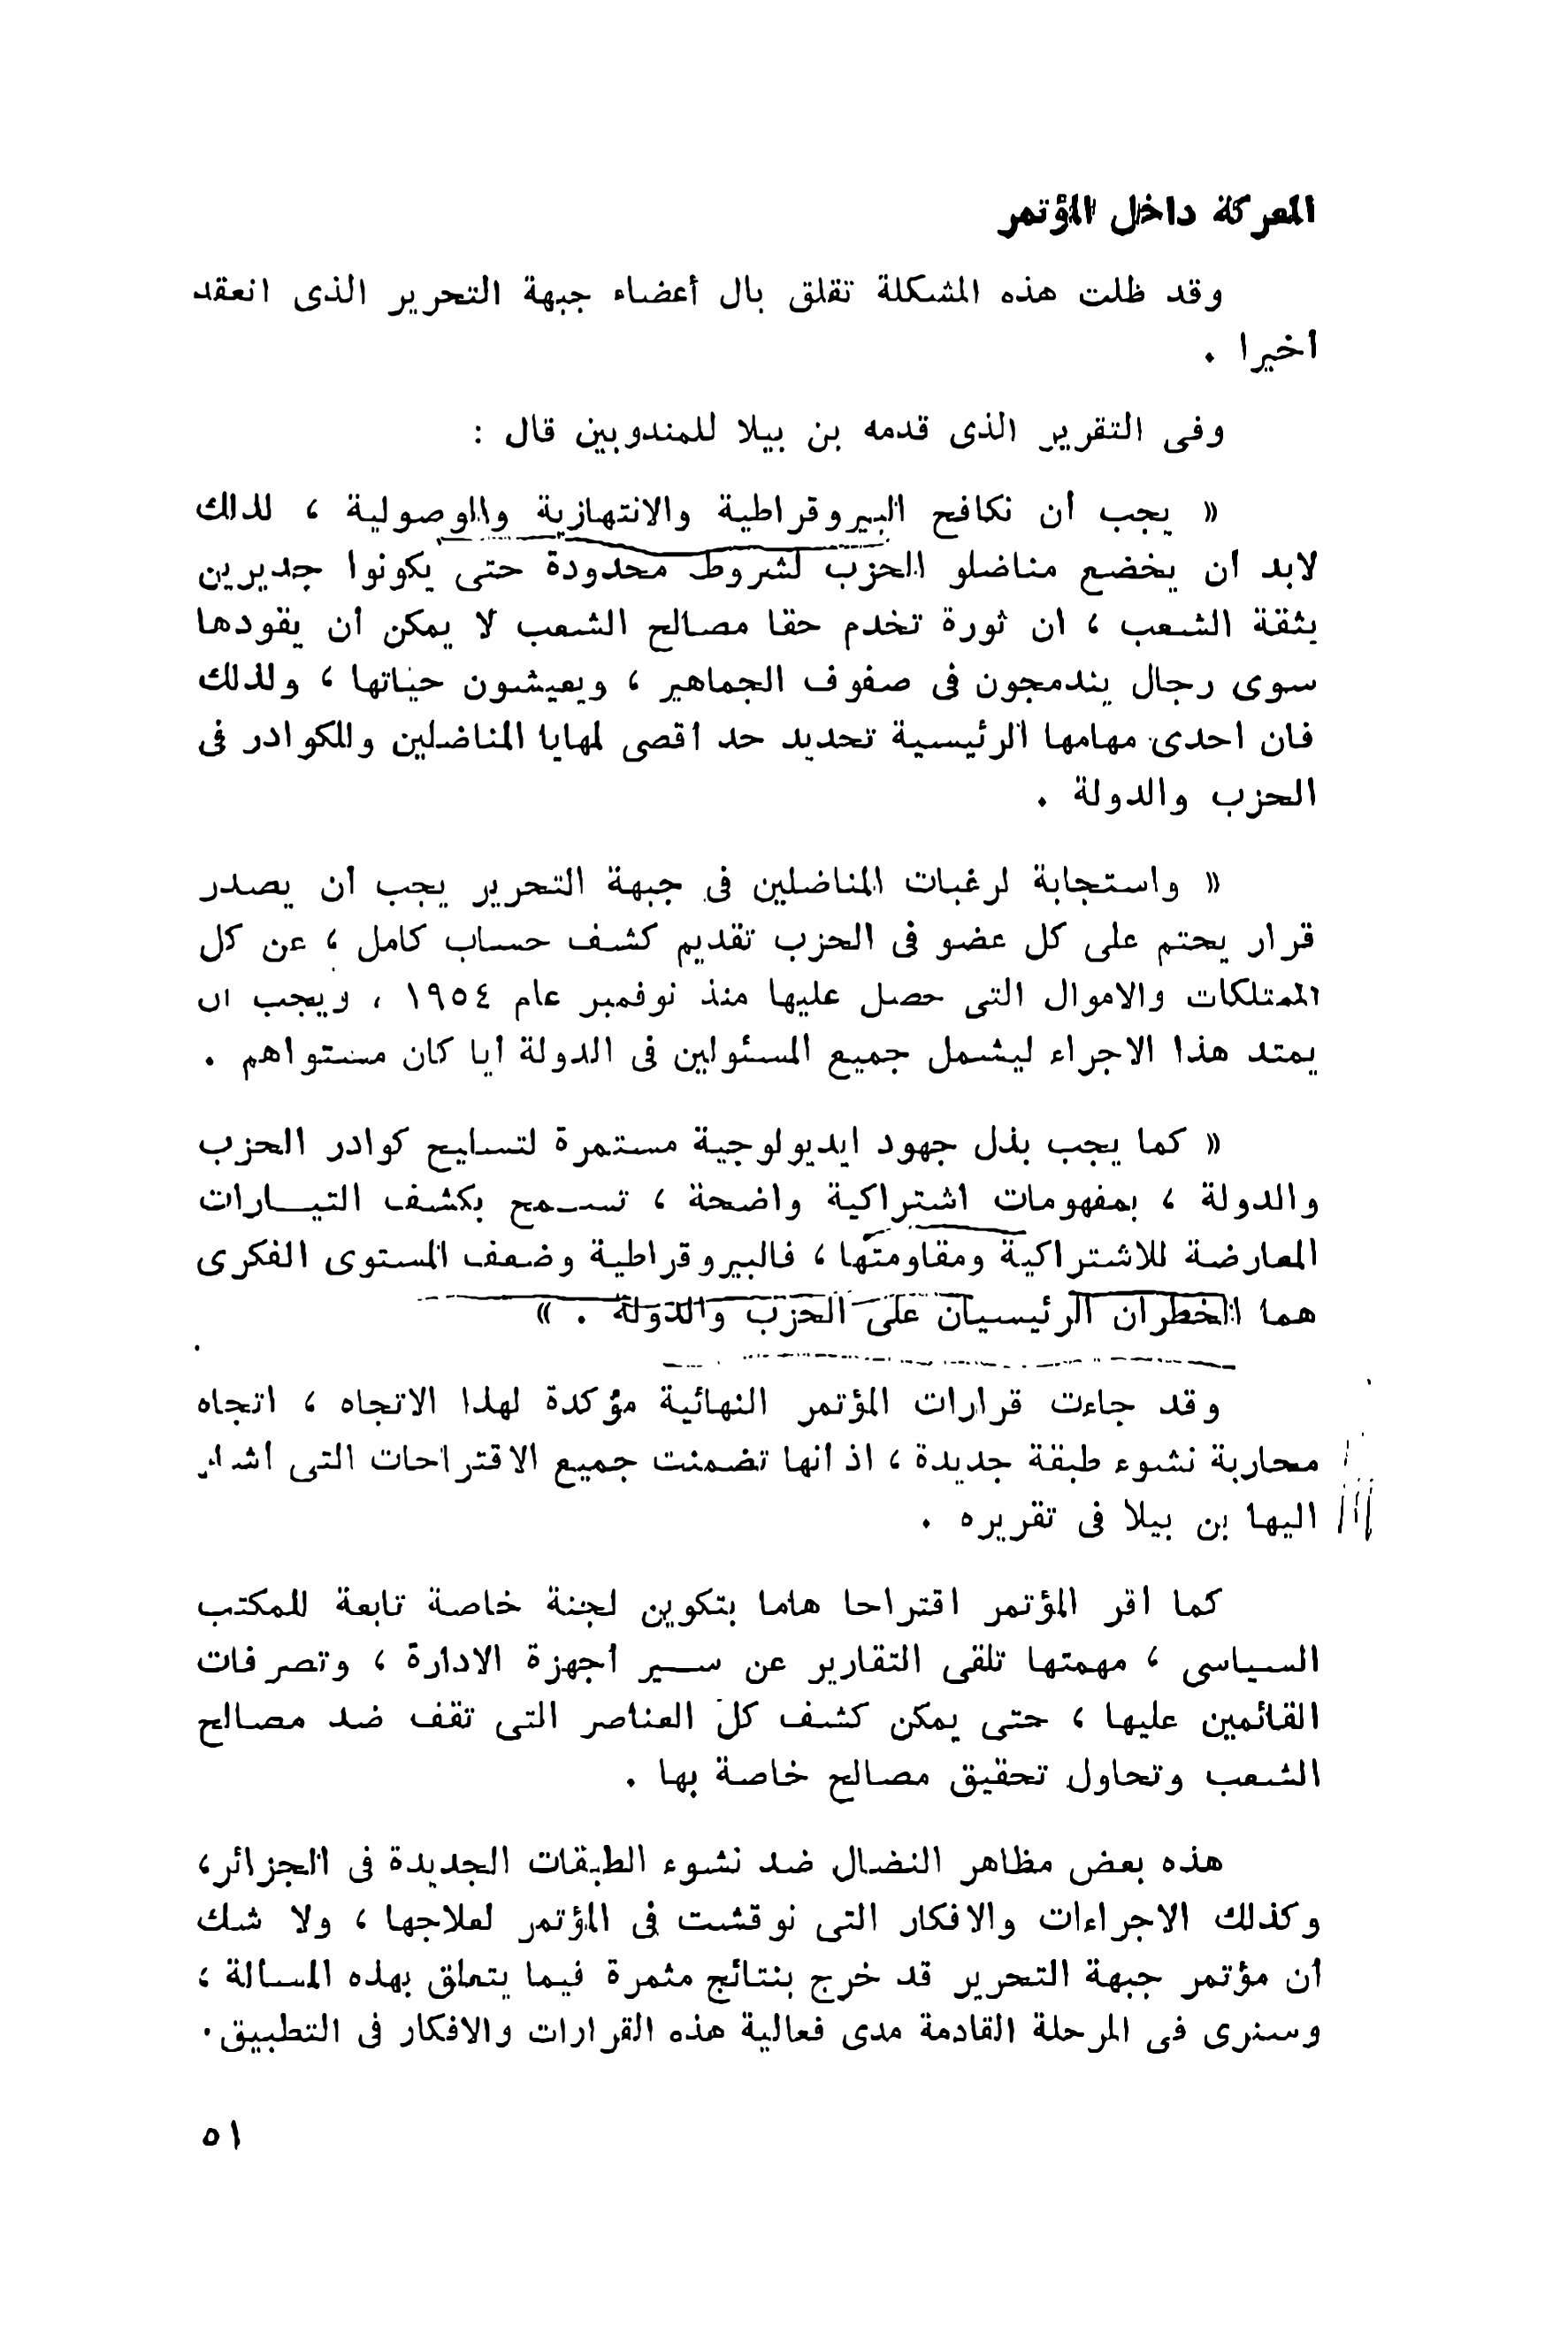 المعركة داخل المؤتمر
وقد ظلت هذه المشكلة تقلق بال أعضاء جبهة التحرير الذى انعقد
أخيرا .
وفى التقرير الذى قدمه بن بيلا للمندوبين قال :
« يجب أن نكافح البيروقراطية والانتهازية والوصولية ، لذلك
لابد أن يخضع مناضلو الحزب لشروط محدودة حتى يكونوا جديرين
بثقة الشعب ، ان ثورة تخدم حقا مصالح الشعب لا يمكن أن يقودها
سوى رجال يندمجون فى صفوف الجماهير ، ويعيشون حياتها ، ولذلك
فان احدى مهامها الرئيسية تحديد حد أقصى لمهايا المناضلين وللكوادر فى
الحزب والدولة .
« واستجابة لرغبات المناضلين فى جبهة التحرير يجب أن يصدر
قرار يحتم على كل عضو فى الحزب تقديم كشف حساب كامل ، عن كل
الممتلكات والاموال التى حصل عليها منذ نوفمبر عام ١٩٥٤ ، ويجب ان
يمتد هذا الاجراء ليشمل جميع المسئولين فى الدولة أيا كان مستواهم .
« كما يجب بذل جهود ايديولوجية مستمرة لتسليح كوادر الحزب
والدولة ، بمفهومات اشتراكية واضحة ، تسمح بكشف التيارات
المعارضة للاشتراكية ومقاومتها ، فالبيروقراطية وضعف المستوى الفكرى
هما الخطران الرئيسيان على الحزب والدولة . »
وقد جاءت قرارات المؤتمر النهائية مؤكدة لهذا الاتجاه ، اتجاه
محاربة نشوء طبقة جديدة ، اذ أنها تضمنت جميع الاقتراحات التى أشار
اليها بن بيلا فى تقريره .
كما اقر المؤتمر اقتراحا هاما بتكوين لجنة خاصة تابعة للمكتب
السياسى ، مهمتها تلقى التقارير عن سير أجهزة الادارة ، وتصرفات
القائمين عليها ، حتى يمكن كشف كل العناصر التى تقف ضد مصالح
الشعب وتحاول تحقيق مصالح خاصة بها .
هذه بعض مظاهر النضال ضد نشوء الطبقات الجديدة فى الجزائر،
وكذلك الاجراءات والافكار التى نوقشت فى المؤتمر لعلاجها ، ولا شك
أن مؤتمر جبهة التحرير قد خرج بنتائج مثمرة فيما يتعلق بهذه المسألة ،
وسنرى فى المرحلة القادمة مدى فعالية هذه القرارات والافكار فى التطبيق.
٥١